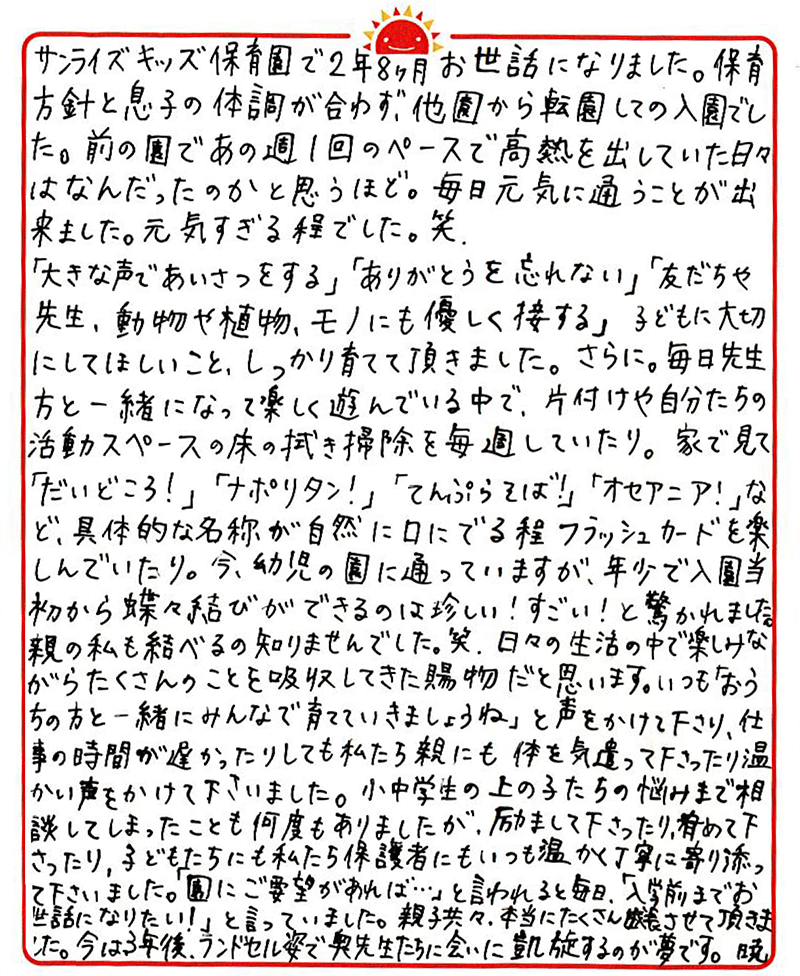 サンライズキッズ保育園で2年8ヶ月お世話になりました。保育
方針と息子の体調が合わず、他園から転園しての入園でし
た。前の園であの週1回のペースで高熱を出していた日々
はなんだったのかと思うほど。毎日元気に通うことが出
来ました。元気すぎる程でした。笑.
「大きな声であいさつをする」「ありがとうを忘れない」「友だちや
先生、動物や植物、モノにも優しく接する」子どもに大切
にしてほしいこと、しっかり育てて頂きました。さらに。毎日先生
方と一緒になって楽しく遊んでいる中で、片付けや自分たちの
活動スペースの床の拭き掃除を毎週していたり。家で見て
「だいどころ!」「ナポリタン!」「てんぷらそば!」「オセアニア!」な
ど、具体的な名称が自然に口にでる程フラッシュカードを楽
しんでいたり。今、幼児の園に通っていますが、年少で入園当
初から蝶々結びができるのは珍しい!すごい!と驚かれました。
親の私も結べるの知りませんでした。笑.日々の生活の中で楽しみな
がらたくさんのことを吸収してきた賜物だと思います。いつも「おう
ちの方と一緒にみんなで育てていきましょうね」と声をかけて下さり、仕
事の時間が遅かったりしても私たち親にも体を気遣って下さったり温
かい声をかけて下さいました。小中学生の上の子たちの悩みまで相
談してしまったことも何度もありましたが、励まして下さったり,宥めて下
さったり,子どもたちにも私たち保護者にもいつも温かく丁寧に寄り添っ
て下さいました。「園にご要望があれば…」と言われると毎日、「入学前までお
世話になりたい!」と言っていました。親子共々、本当にたくさん成長させて頂きま
した。今は3年後、ランドセル姿で奥先生たちに会いに凱旋するのが夢です。暁